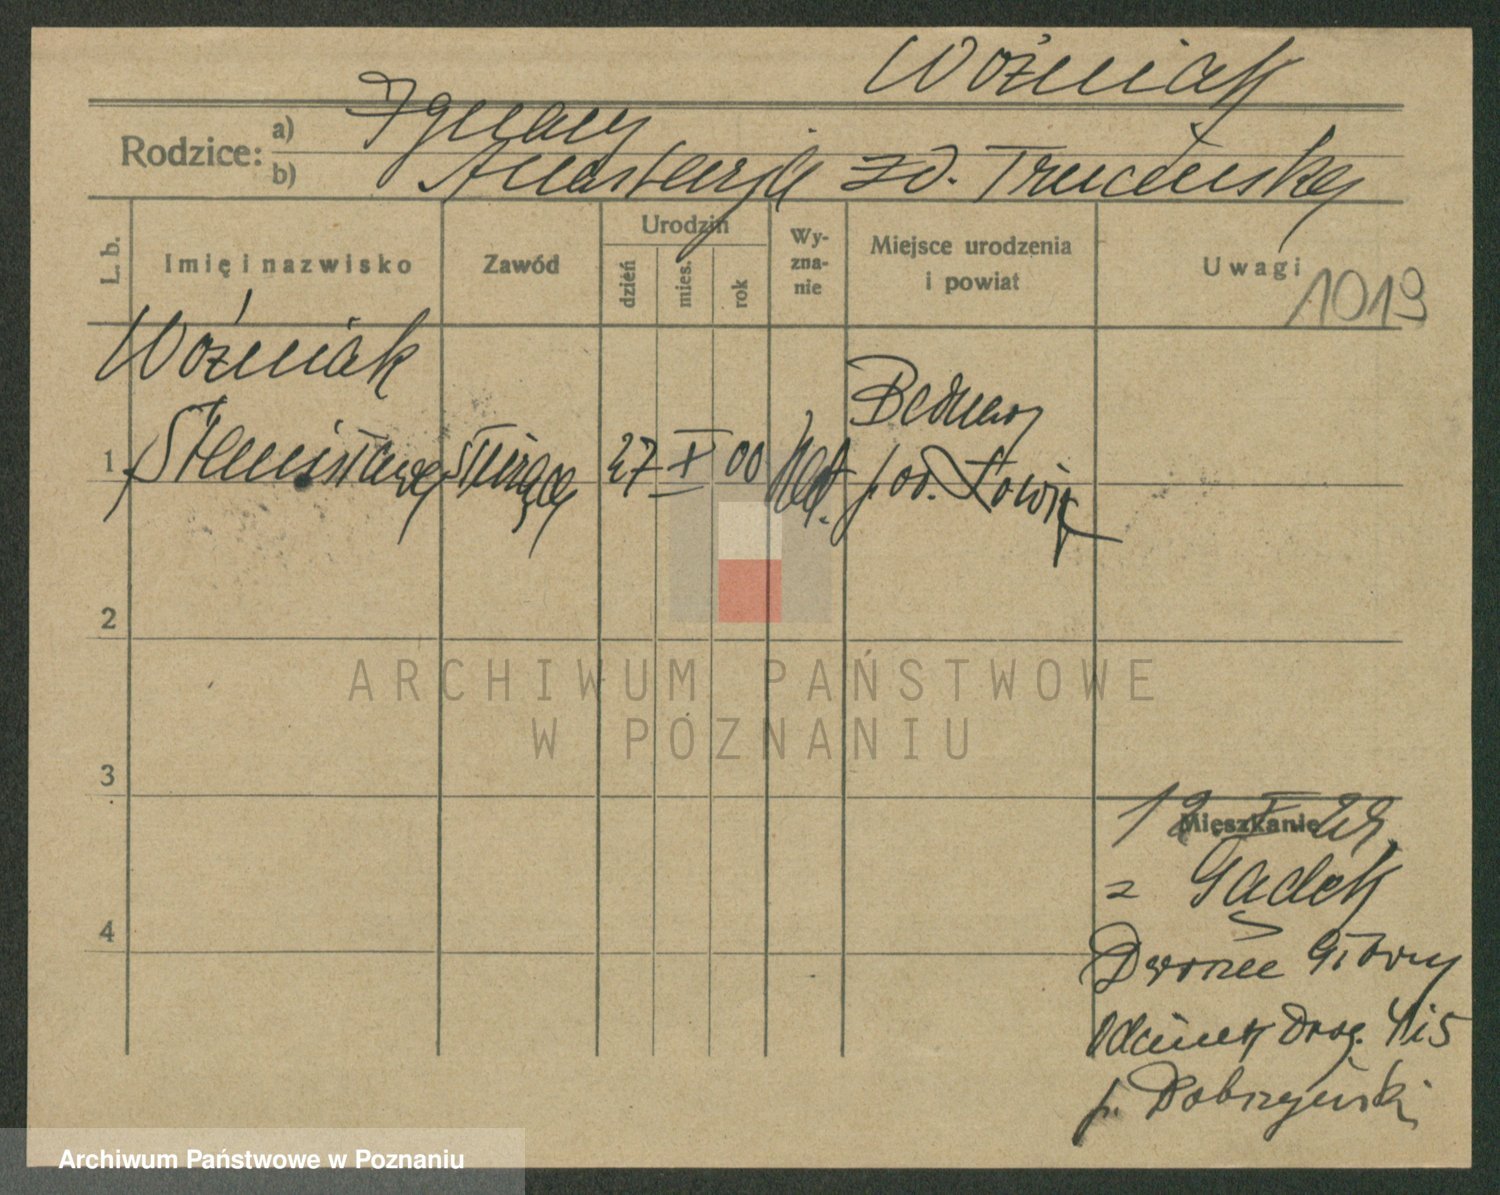 Woźniak
Rodzice:
a) Ignacy
b) Anastazja zd.
L. b.
Imię i nazwisko
Zawód
Urodzin
dzień
mies.
rok
Wy-
zna-
nie
Miejsce urodzenia
i powiat
Uwagi
1019
Woźniak
1 Stanisława służąca 27 X 00 kat. Bednary
pow. Łowicz
2
3
4
Mieszkanie
z Gądek
Dworzec Główny
Odcinek Drog. 4 i 5
p. Dobrzyński
ARCHIWUM PAŃSTWOWE
W POZNANIU
Archiwum Państwowe w Poznaniu